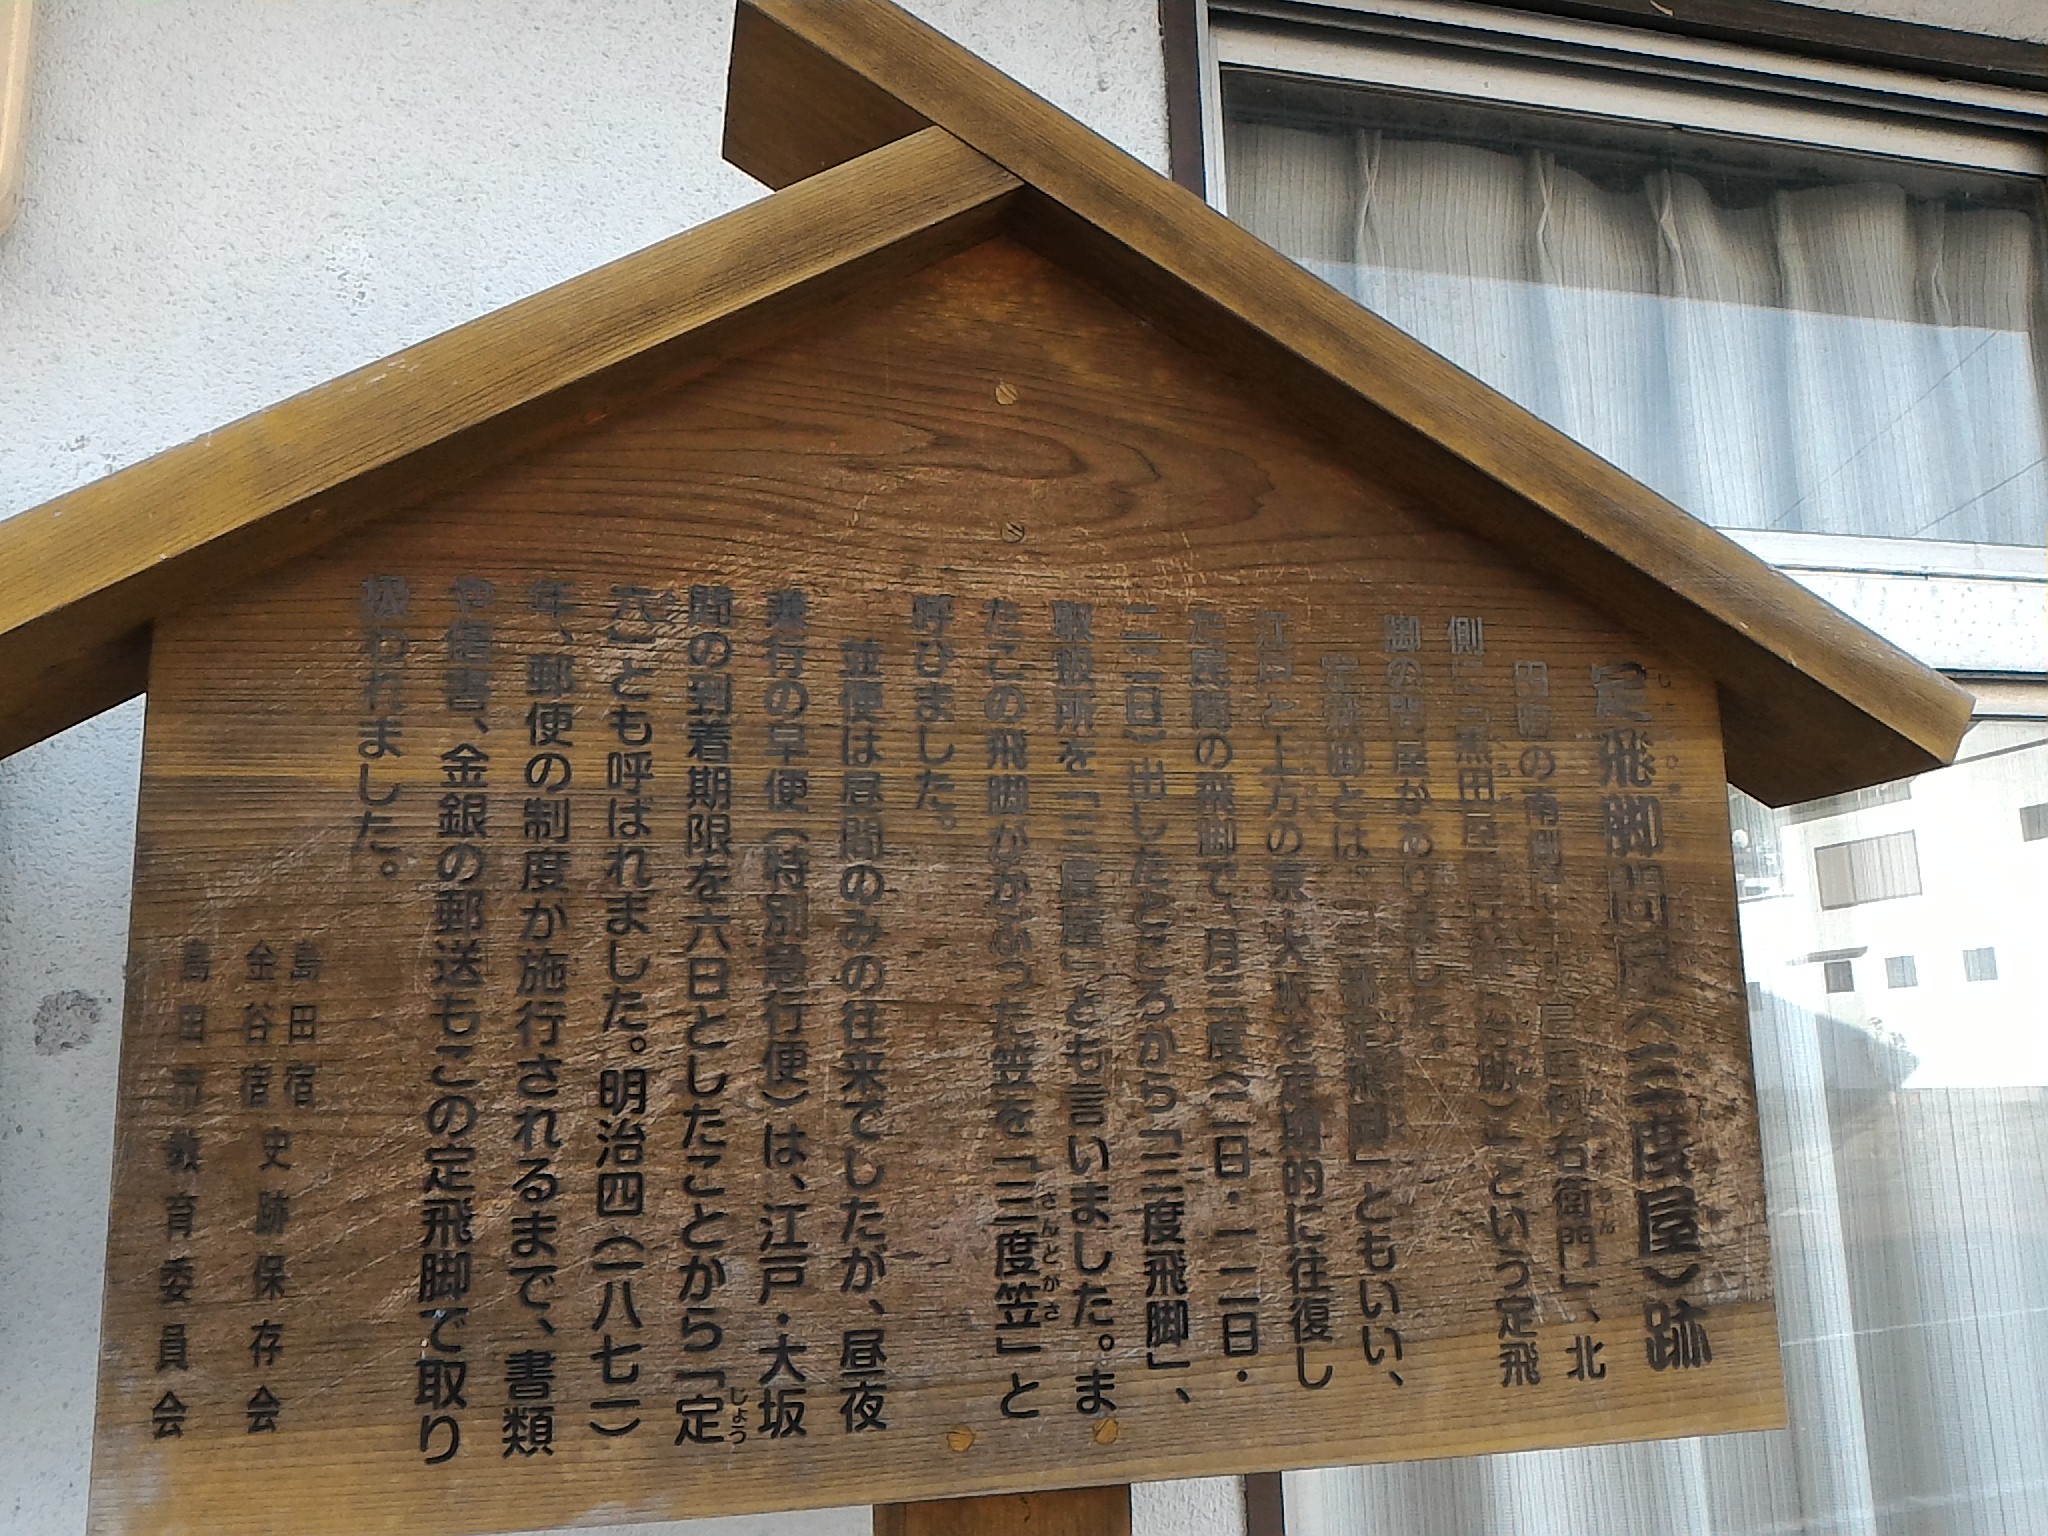 定飛脚問屋(三度屋)跡
の南側に 右衛門」、北
側に「黒田屋 という定飛
脚の問屋がありました。
定飛脚とは、「三都定飛脚」ともいい、
江戸と上方の京・大坂を定期的に往復し
た民間の飛脚で、月三度(二日・一二日・
二二日)出したところから「三度飛脚」、
取扱所を「三度屋」とも言いました。ま
たこの飛脚がかぶった笠を「三度笠」と
さんどがさ
呼びました。
並便は昼間のみの往来でしたが、昼夜
兼行の早便(特別急行便)は、江戸・大坂
間の到着期限を六日としたことから「定
じょう
六」とも呼ばれました。明治四(一八七一)
年、郵便の制度が施行されるまで、書類
や信書、金銀の郵送もこの定飛脚で取り
扱われました。
島田宿
金谷宿 史跡保存会
島田市教育委員会